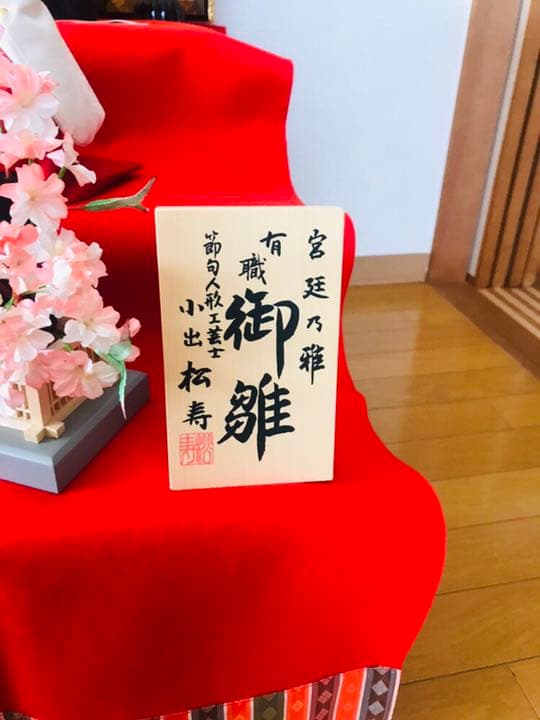 宮廷乃雅
有職
御雛
節句人形工芸士
小出松寿
松寿